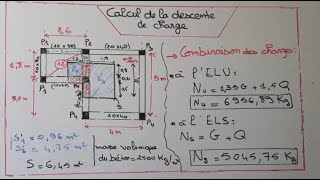 Calcul de la descente
de charge
2,6
P3
P2
P4
(20x30)
(20x40)
1,8 m
5m
P1
4m
S'1 = 0,96 m²
S = 6,45 m²
masse volumique
du béton = 2500 Kg/m³
Combinaison des charges:
* à l'ELU:
Nu = 1,35G + 1,5Q
Nu = 6956,89 Kg
* à l'ELS:
Ns = G + Q
Ns = 5045,75 Kg